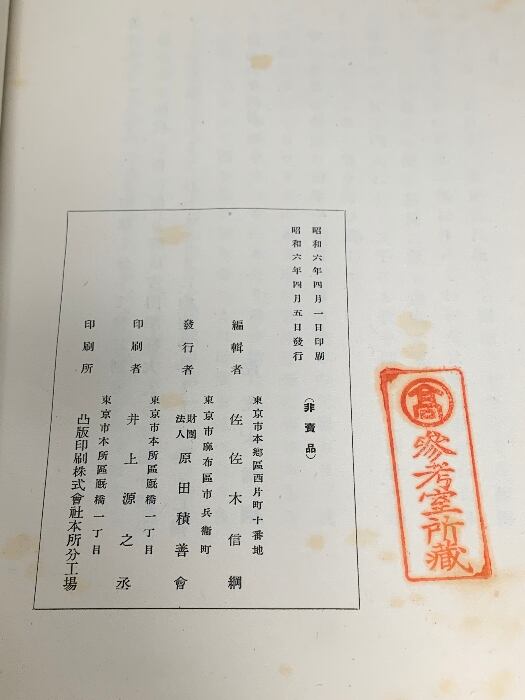 昭和六年四月一日印刷
昭和六年四月五日發行
(非賣品)
東京市本鄕區西片町十番地
編輯者 佐佐木信綱
東京市麻布區市兵衞町
發行者 財團法人 原田積善會
東京市本所區厩橋一丁目
印刷者 井上源之丞
東京市本所區厩橋一丁目
印刷所 凸版印刷株式會社本所分工場
髙
參考室所藏